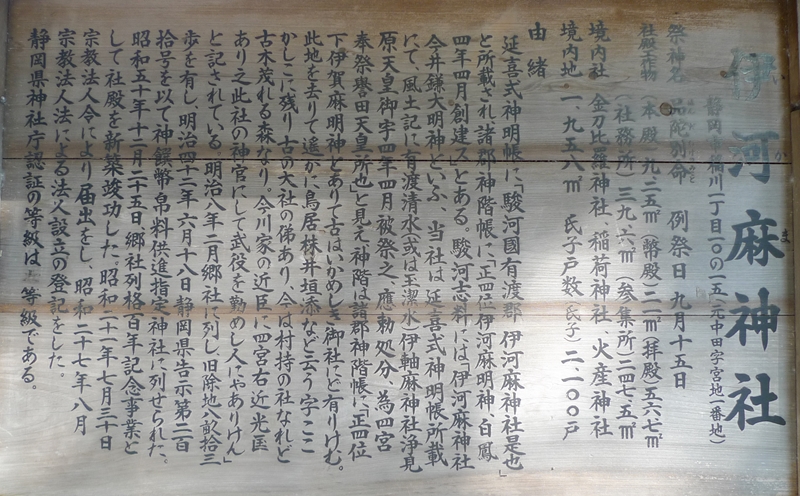 伊河麻神社
いかま
静岡市稲川一丁目一〇の一五(元中田字宮地一番地)
祭神名 品陀別命 例祭日 九月十五日
社殿工作物 (本殿)九・二五㎡(幣殿)二一㎡(拝殿)五六・七㎡
(社務所)三九・六㎡(参集所)二四七・五㎡
境内社 金刀比羅神社、稲荷神社、火産神社
境内地 一、九五八㎡ 氏子戸数(氏子)二、一〇〇戸
由緒
延喜式神明帳に「駿河國有渡郡 伊河麻神社是也」
と所載され諸郡神階帳に、正四位「伊河麻明神 白鳳
四年四月創建」とある。駿河志料には「伊河麻神社
今井鎌大明神といふ、当社は延喜式神明帳所載
にて、風土記に有渡清水(或は玉潔水)伊軸麻神社浄見
原天皇御宇四年四月被祭之、應勅処分、為四宮
奉祭譽田天皇所也」と見え、神階は諸郡神階帳に「正四位
下伊賀麻明神」とありて古はいかめしき御社にど有りけむ。
此地を去りて遥かに鳥居株井垣添など云う字ここ
かしこに残り古の大社の俤あり、今は村持の社なれど
古木茂れる森なり。今川家の近臣に四宮右近光匡
あり之此社の神官にして武役を勤めし人にやありけん」
と記されている。明治八年二月郷社に列し旧除地八畝拾三
歩を有し、明治四十二年六月十八日静岡県告示第二百
拾号を以て神饌幣帛料供進指定神社に列せられた。
昭和五十年十二月二十五日郷社列格百年記念事業と
して社殿を新築竣功した。昭和二十一年七月三十日
宗教法人令により届出をし、昭和二十七年八月
宗教法人法による法人設立の登記をした。
静岡県神社庁認証の等級は 等級である。